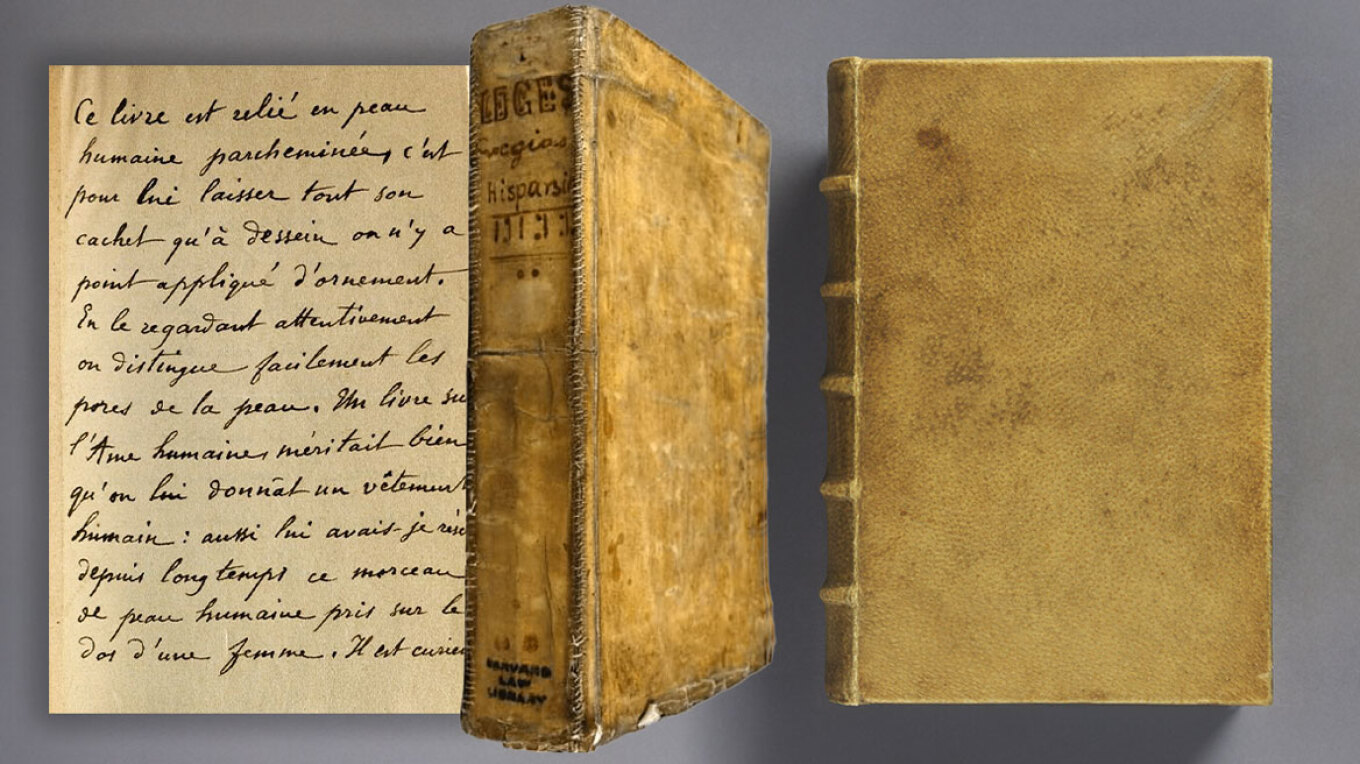 Ce livre est relié en peau
humaine parcheminée, c'est
pour lui laisser tout son
cachet qu'à dessein on n'y a
point appliqué d'ornement.
En le regardant attentivement
on distingue facilement les
pores de la peau. Un livre su
l'Ame humaine, méritait bien
qu'on lui donnât un vêtement
humain : aussi lui avais-je rése
depuis longtemps ce morceau
de peau humaine pris sur le
dos d'une femme. Il est curieu
LEGES
hispani
HARVARD
LAW
LIBRARY